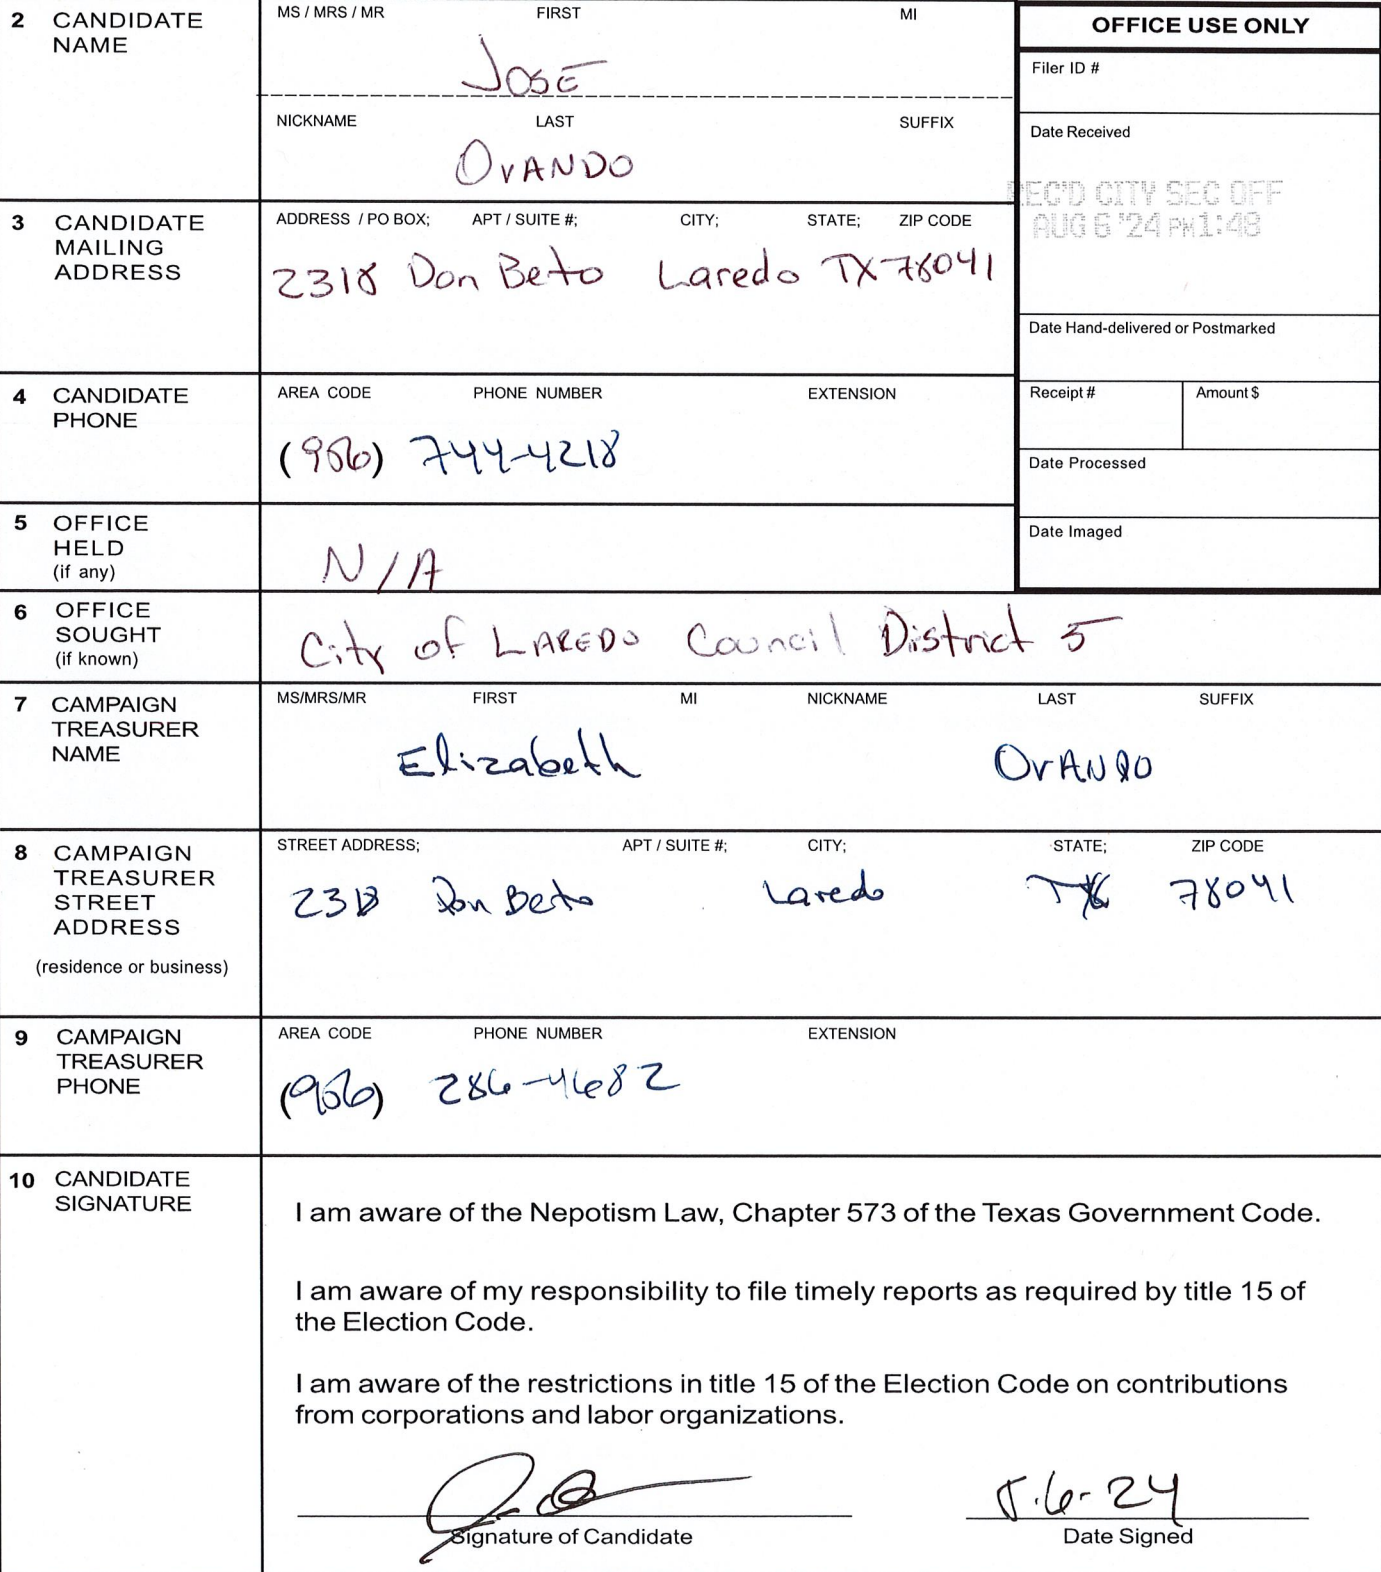 2 CANDIDATE NAME
MS / MRS / MR FIRST MI
JOSE
NICKNAME LAST SUFFIX
OVANDO
OFFICE USE ONLY
Filer ID #
Date Received
REC'D CITY SEC OFF
AUG 6 '24 PM 1:48
Date Hand-delivered or Postmarked
Receipt # Amount $
Date Processed
Date Imaged
3 CANDIDATE MAILING ADDRESS
ADDRESS / PO BOX; APT / SUITE #; CITY; STATE; ZIP CODE
2318 Don Beto Laredo TX 78041
4 CANDIDATE PHONE
AREA CODE PHONE NUMBER EXTENSION
(956) 744-4218
5 OFFICE HELD (if any)
N/A
6 OFFICE SOUGHT (if known)
City of LAREDO Council District 5
7 CAMPAIGN TREASURER NAME
MS/MRS/MR FIRST MI NICKNAME LAST SUFFIX
Elizabeth OVANDO
8 CAMPAIGN TREASURER STREET ADDRESS
(residence or business)
STREET ADDRESS; APT / SUITE #; CITY; STATE; ZIP CODE
2318 Don Beto Laredo TX 78041
9 CAMPAIGN TREASURER PHONE
AREA CODE PHONE NUMBER EXTENSION
(956) 286-4682
10 CANDIDATE SIGNATURE
I am aware of the Nepotism Law, Chapter 573 of the Texas Government Code.
I am aware of my responsibility to file timely reports as required by title 15 of
the Election Code.
I am aware of the restrictions in title 15 of the Election Code on contributions
from corporations and labor organizations.
8.6.24
Signature of Candidate Date Signed